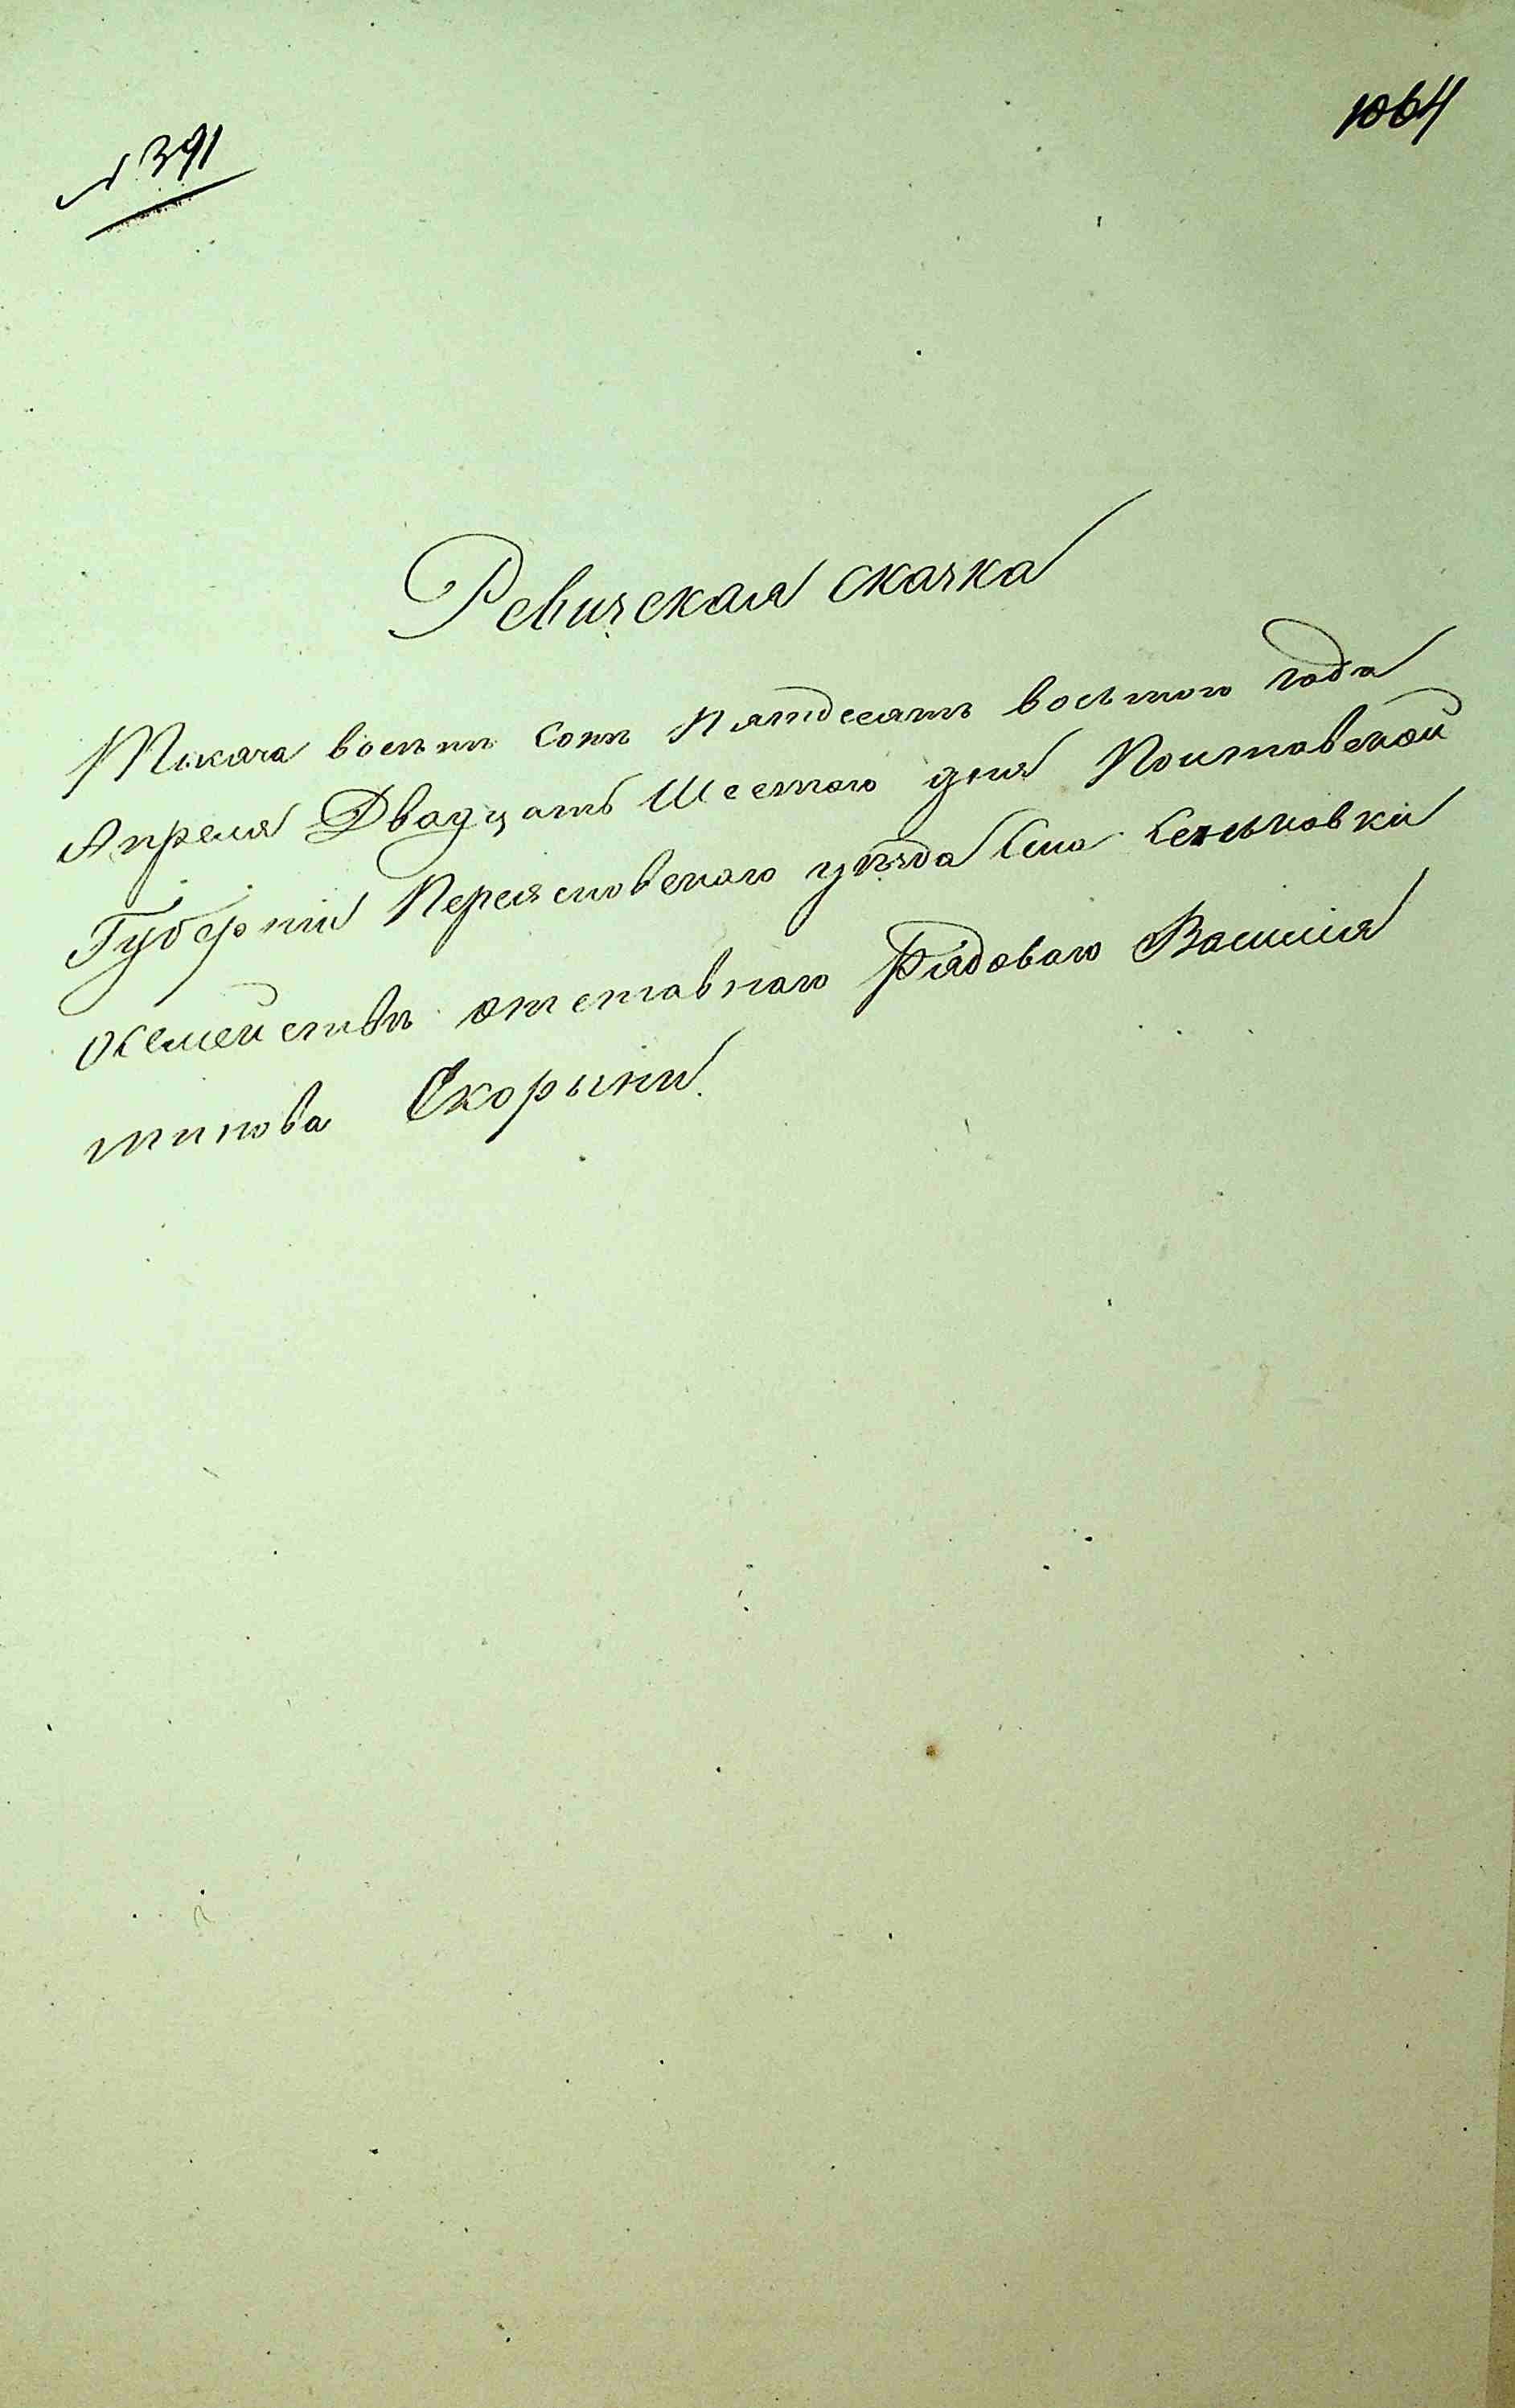 № 391
1064
Ревизская сказка
Тысяча восемь сотъ Пятдесятъ восьмого года
Апреля Двадцать Шестого дня Полтавской
Губерніи Переясловского уѣзда Села Сеньковки
Осемействѣ отставного Рядоваго Василія
тинова Скорыни.